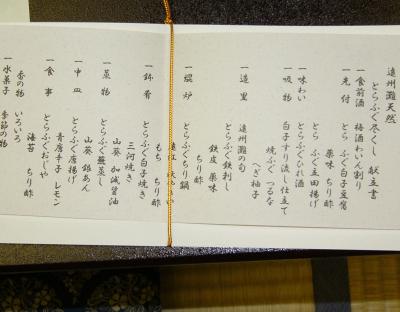 遠州灘天然
とらふぐ尽くし 献立書
一食前酒 梅酒わいん割り
一先付 とらふぐ白子豆腐
薬味 ちり酢
一味わい とらふぐ立田揚げ
とらふぐひれ酒
一吸物 白子すり流し仕立て
焼ふぐ つるな
へぎ柚子
一造里 遠州灘の旬
とらふぐ鉄刺し
鉄皮 薬味
ちり酢
一焜炉 とらふぐちり鍋
ちり酢
一鉢肴 とらふぐ白子焼き
三河焼き
山葵 加減醤油
一蒸物 とらふぐ蕪蒸し
山葵 銀あん
一中皿 とらふぐ唐揚げ
青唐辛子 レモン
一食事 とらふぐおじや
海苔 ちり酢
香の物 いろいろ
一水菓子 季節の物